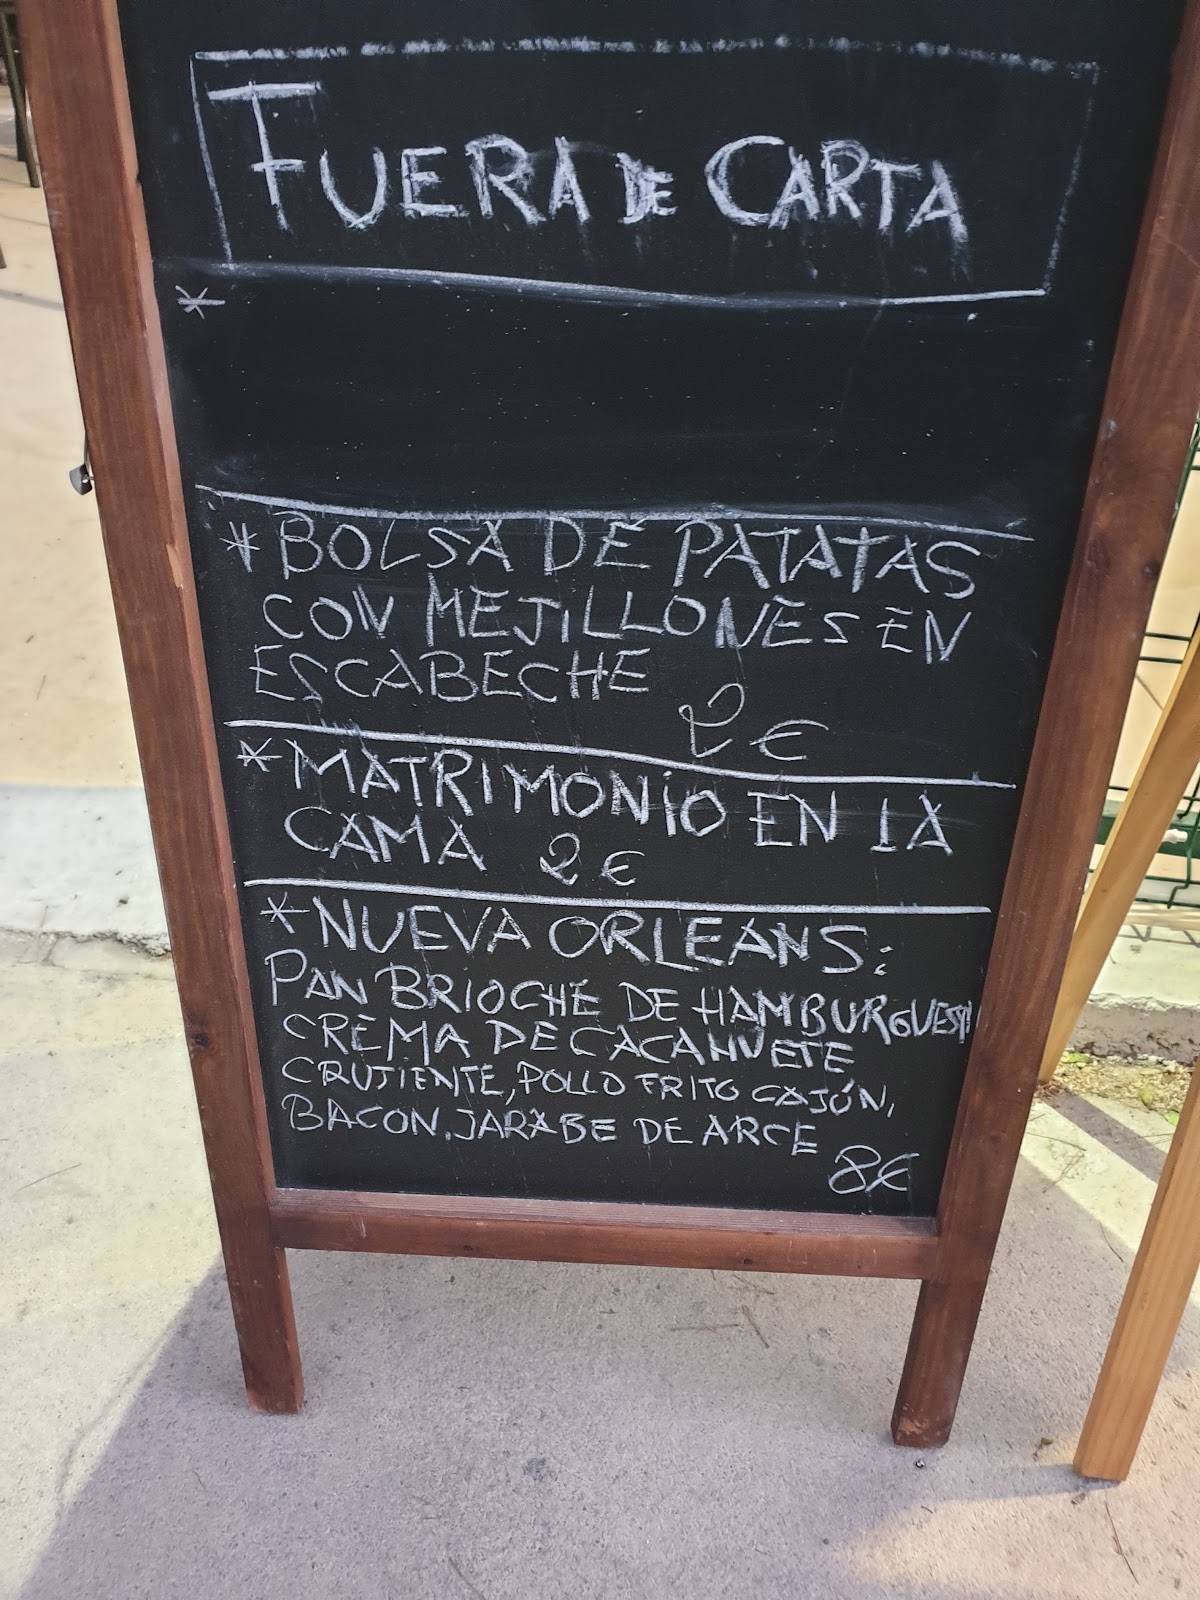 FUERA DE CARTA
*
* BOLSA DE PATATAS
CON MEJILLONES EN
ESCABECHE
2 €
* MATRIMONIO EN LA
CAMA 2 €
* NUEVA ORLEANS:
PAN BRIOCHE DE HAMBURGUESA
CREMA DE CACAHUETE
CRUJIENTE, POLLO FRITO CAJÚN,
BACON. JARABE DE ARCE
8€